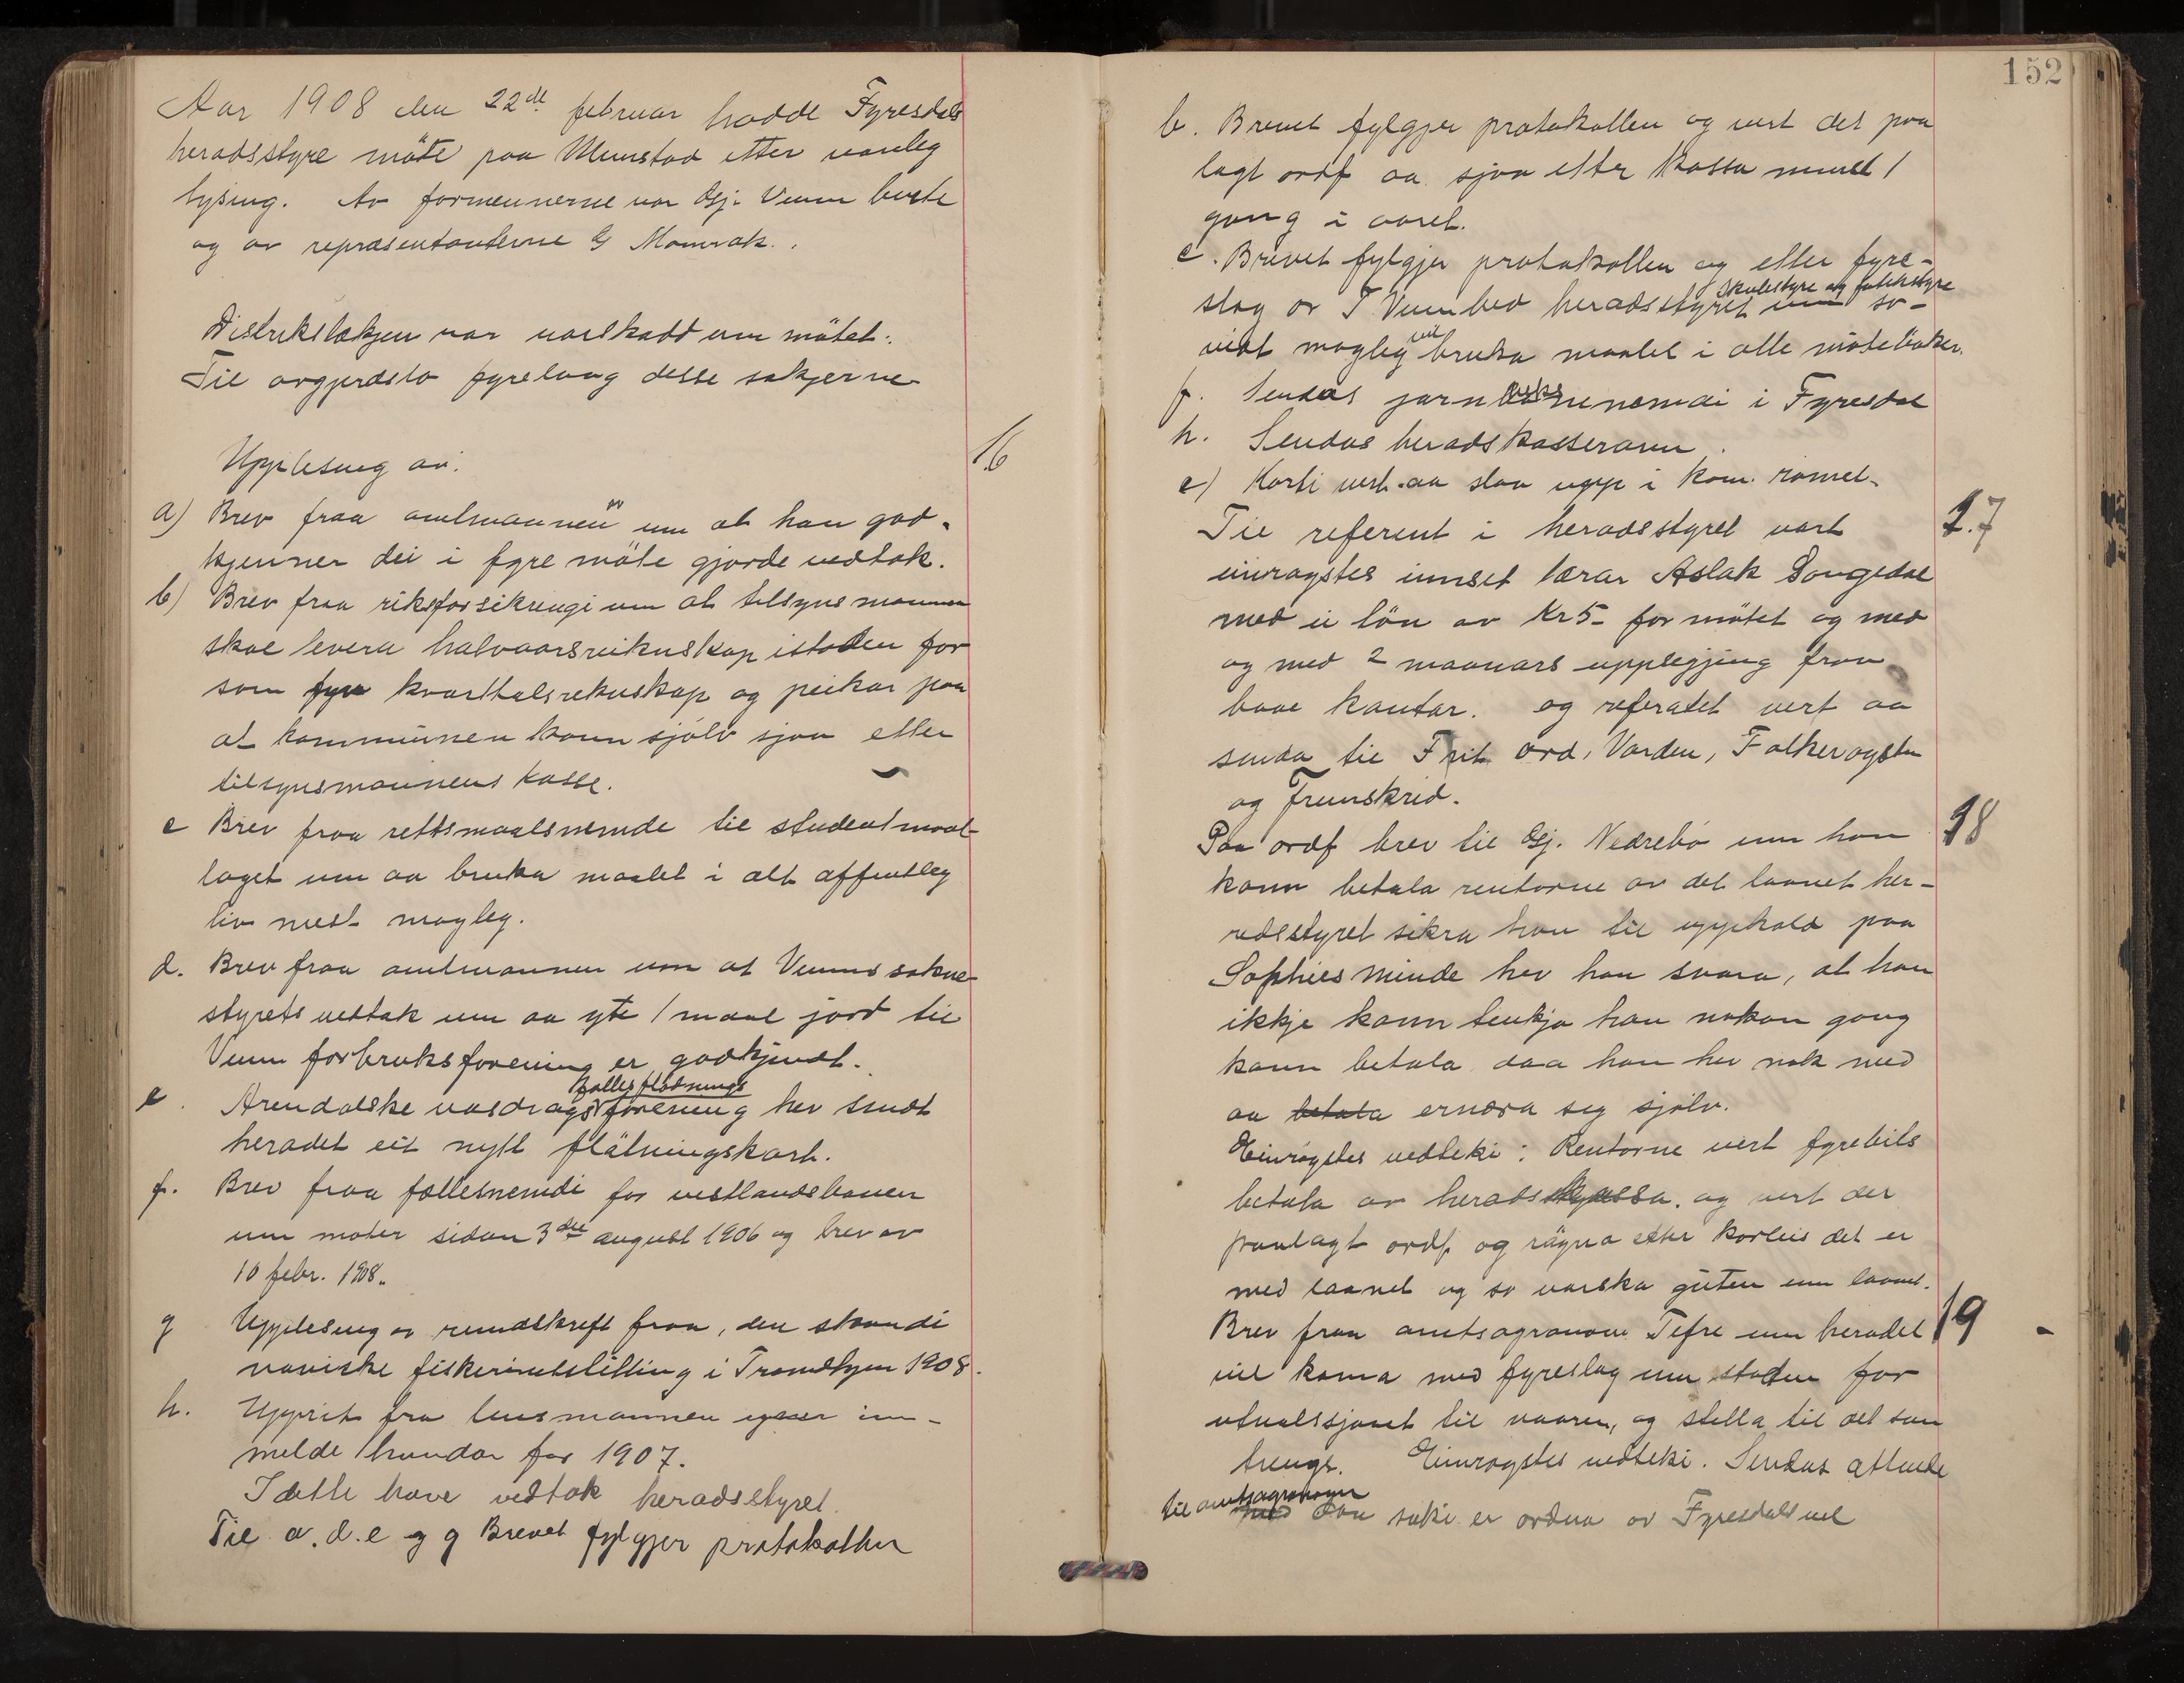 Aar 1908 den 22de februar hadde Fyresdals
heradsstyre möte paa Munstad etter vanleg
lysing. Av formennerne var Gj. Veum burte
og av repræsentanterne G Momrak.
Distrikslækjen var varskadd um mötet.
Til avgjerdslo fyrelaag desse sakjerne
16
Upplesing av:
a) Brev fraa amtmannen um at han god-
kjenner dei i fyre möte gjorde vedtak.
b) Brev fraa riksforsikringi um at tilsynsmannen
skal levera halvaarsreikuskap istaden for
som fyr kvarttalsrekuskap og peikar paa
at kommunen kann sjölv sjaa etter
tilsynsmannens kasse.
c Brev fraa rettsmaalsnemde til studentmaal-
laget um aa bruka maalet i alt offentleg
liv mest mogleg.
d. Brev fraa amtmannen um at Veums sokne-
styrets vedtak um aa yte 1 maal jord til
Veum forbruksforening er godkjendt.
e. Arendalske vasdrags fellesflötnings forening hev sendt
heradet eit nytt flötningskart.
f. Brev fraa fællesnemdi for vestlandsbanen
um möter sidan 3die august 1906 og brev av
10 febr. 1908.
g Upplesing av rundskrift fraa, den skandi
naviske fiskeriutstilling i Trondhjem 1908.
h. Upprit fra lensmannen yver inn-
melde hundar for 1907.
I dette have vedtok heradsstyret.
Til a. d. e og g Brevet fylgjer protokollen
152
b. Brevet fylgjer protokollen og vert det paa
lagt ordf aa sjaa etter kassa minst 1
gong i aaret.
c. Brevet fylgjer protokollen og etter fyre-
slag av T Veum bed heradsstyret um skulestyre og fatikstyre so-
vidt mogleg vil bruka maalet i alle möteböker.
f. Sendas jarnbanenemdi i Fyresdal
h. Sendas heradskasseraren.
e) Korti vert aa slaa upp i kom. romet.
17
Til referent i heradsstyret vart
einrøystes innset lærar Aslak Songedal
med ei lön av Kr 5- for mötet og med
og med 2 maanars uppsegjing fraa
baae kantar. og referatet vert aa
senda til Frit ord, Varden, Folkerøysta
og Frumskrid.
18
Paa ordf brev til Gj. Nedrebö um han
kann betala rentorne av det laanet her-
adsstyret sikra han til upphald paa
Sophies minde hev han svara, at han
ikkje kann tenkja han nokon gong
kann betala daa han hev nok med
aa betala ernæra seg sjölv.
Einröystes vedteki: Rentorne vert fyrebils
betala av heradskassa. og vert det
paalagt ordf og rögna etter korleis det er
med laanet og so varska guten um laanet.
19
Brev fraa amtsagronom Tefre um heradet
vil koma med fyreslag um staden for
utvalssjaaet til vaaren, og stella til det som
trengs. Einröystes vedteki. Sendas attende
til amtsagronomen med den saki er ordna av Fyresdals vel